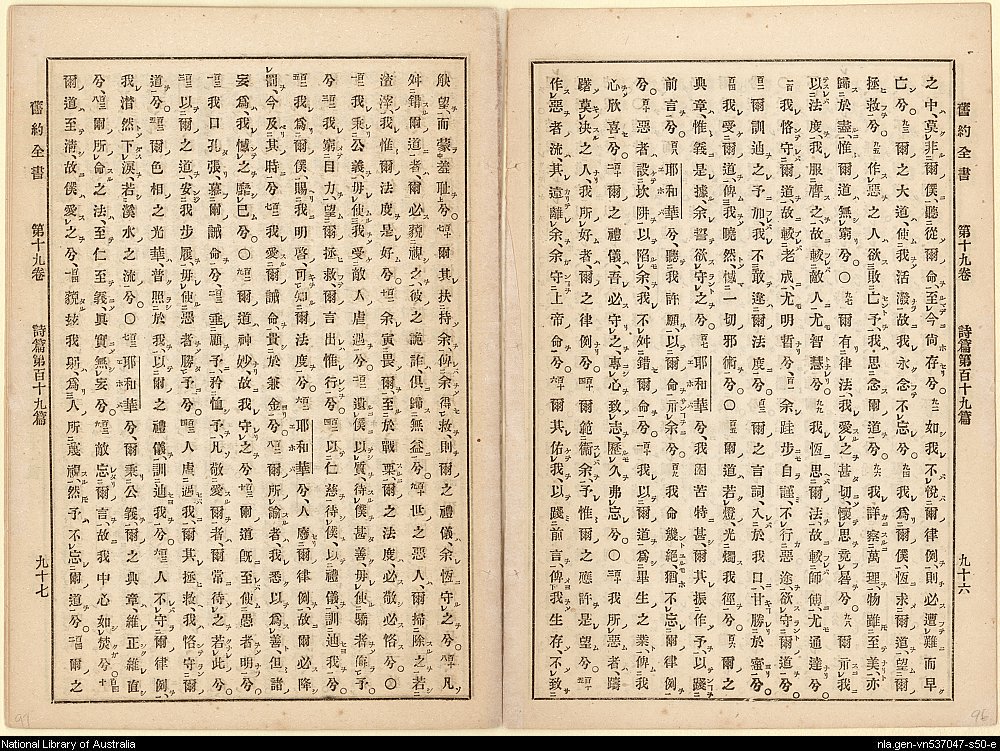 舊約全書 第十九卷 詩篇第百十九篇 九十六
之中、莫非爾僕、聽從爾命、至今尙存兮。九二 如我不悅爾律例、則必遭難而早
亡兮。九三 爾之大道、使我活潑、故我永念不忘兮。九四 我爲爾僕、恆求爾道、望爾
拯救兮。九五 作惡之人、欲敗亡予、我思念爾道兮。九六 我詳察萬理、物雖至美、亦
歸於盡、惟爾道無窮兮。○九七 爾有律法、我愛之甚切、懷思竟晷兮。九八 爾示我
以法度、我服膺之、故較敵人、尤智慧兮。九九 我恆思爾法、故較師傅、尤通達兮。
一百 我恪守爾道、故較老成、尤明哲兮。百一 余跬步自謹、不行惡途、欲守爾道兮。
百二 爾訓迪予、加我、不敢違爾法度兮。百三 爾之言詞、入於我口、甘勝於蜜兮。
百四 我受爾道、俾我曉然、憾一切邪術兮。○百五 爾道若燈、光燭我徑兮。百六 爾之
典章、惟義是據、余誓欲守之兮。百七 耶和華兮、我困苦特甚、爾其振作予、以踐
前言兮。百八 耶和華兮、聽我許願、以爾命示余兮。百九 我命幾絕、猶不忘爾律例
兮。百十 惡者設坎阱以陷余、我不舛錯爾命兮。百十一 我以爾道、爲畢生之業、俾我
心欣喜兮。百十二 爾之禮儀、吾必守之、專心致志、歷久弗忘兮。○百十三 我所惡者、躊
躇莫決之人、我所好者、爾之律例兮。百十四 爾範衞余、予惟爾之應許是望兮。百十五
作惡者流、其遠離余、余守上帝命兮。百十六 爾其佑我、以踐前言、俾我生存、不致
舊約全書 第十九卷 詩篇第百十九篇 九十七
觖望而蒙羞恥兮。百十七 爾其扶持余、俾余得救、則爾之禮儀、余恆守之兮。百十八 凡
舛錯爾道者、爾必藐視之、彼之詭詐、俱歸無益兮。百十九 世之惡人、爾掃除之、若
渣滓、我惟爾法度是好兮。百二十 余寅畏爾、至於戰栗、爾之法度、必敬必恪兮。○
百二一 我秉公義、毋使我受敵人虐遇兮。百二二 遺爾僕以質、待僕甚善、毋使驕者侮予
兮。百二三 我窮目力、望爾拯救、爾言出惟行兮。百二四 以仁慈待僕、以禮儀訓迪我兮。
百二五 我爲爾僕、賜我明啓、可知爾法度兮。百二六 耶和華兮、人廢爾律例、故爾必降
罰、今及其時兮。百二七 我愛爾誡命、貴於兼金兮。百二八 爾所諭者、我悉以爲善、但諸
妄爲、我憾之靡已兮。○百二九 爾道神妙、故我守之兮。百三十 爾道旣至、使愚者明兮。
百三一 我口孔張、慕爾誡命兮。百三二 垂顧予、矜恤予、凡敬愛爾者、爾常待之若此兮。
百三三 以爾之道、安我步履、毋使惡者勝予兮。百三四 人虐遇我、爾其拯救、我恪守爾
道兮。百三五 爾色相之光華、普照於我、以爾之禮儀、訓迪我兮。百三六 人不守爾律例、
我潸然下淚、若溪水之流兮。○百三七 耶和華兮、爾秉公義、爾之典章、維正維直
兮。百三八 爾所命之法、至仁至義、眞實無妄兮。百三九 敵忘爾言、故我中心如焚兮。百四十
爾道至淸、故僕愛之兮。百四一 藐玆我躬、爲人所蔑視、然予不忘爾道兮。百四二 爾之
97
96
National Library of Australia
nla.gen-vn537047-s50-e